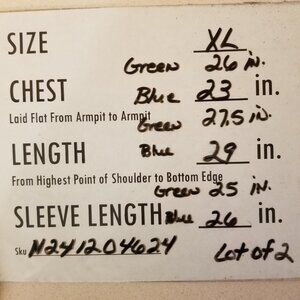 SIZE XL
Green 26 in.
CHEST Blue 23 in.
Laid Flat From Armpit to Armpit
Green 27.5 in.
LENGTH Blue 29 in.
From Highest Point of Shoulder to Bottom Edge
Green 25 in.
SLEEVE LENGTH Blue 26 in.
Sku N241204624 Lot of 2